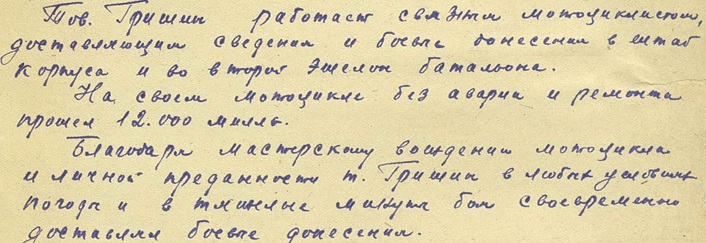 Тов. Гришин работает связным мотоциклистом,
доставляющим сведения и боевые донесения в штаб
корпуса и во второй эшелон батальона.
На своем мотоцикле без аварии и ремонта
прошел 12.000 милль.
Благодаря мастерскому вождению мотоцикла
и личной преданности т. Гришин в любых условиях
погоды и в тяжелые минуты боя своевременно
доставлял боевые донесения.